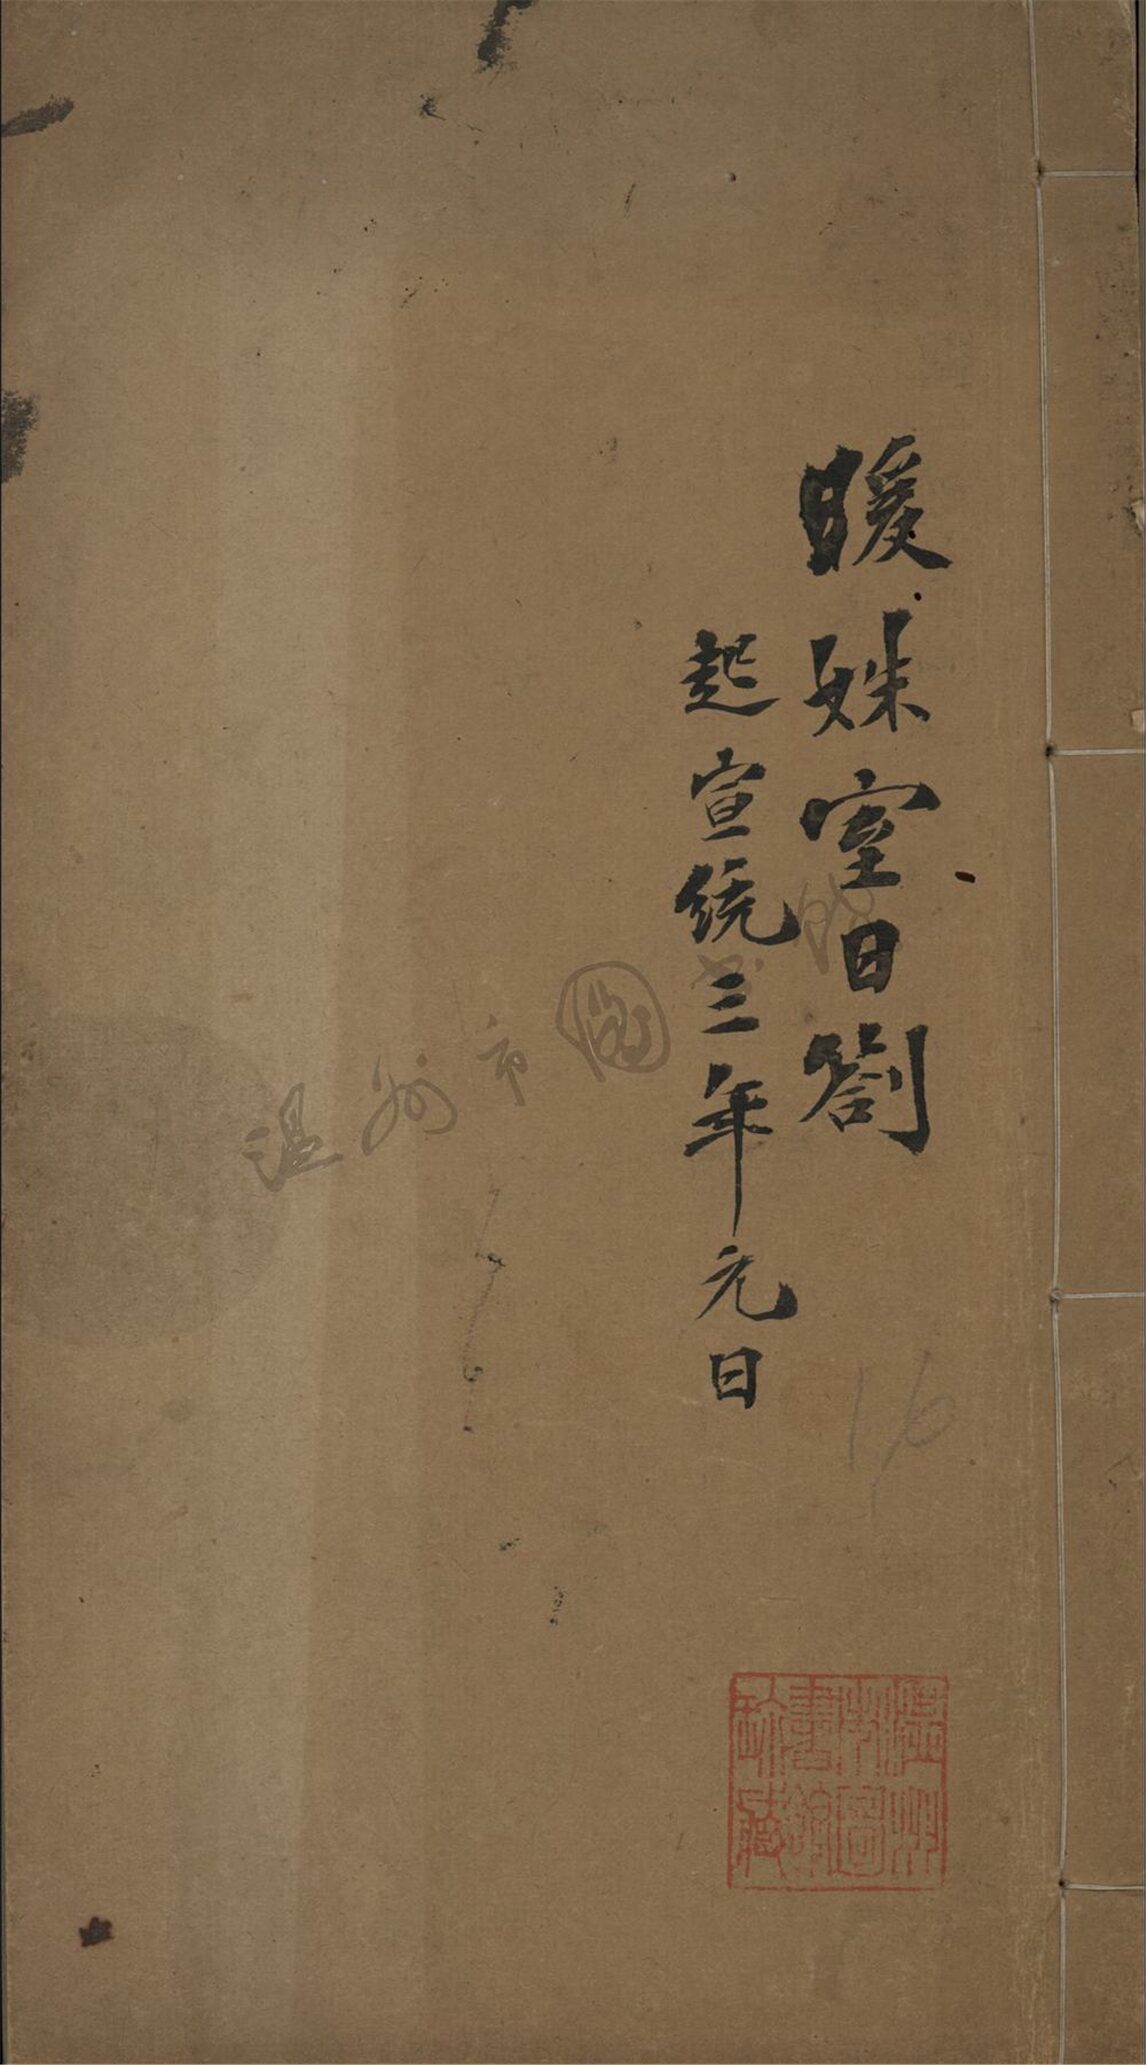 暖姝室日劄
起宣統三年元日
16
温州市圖書館
温州市圖書館所藏